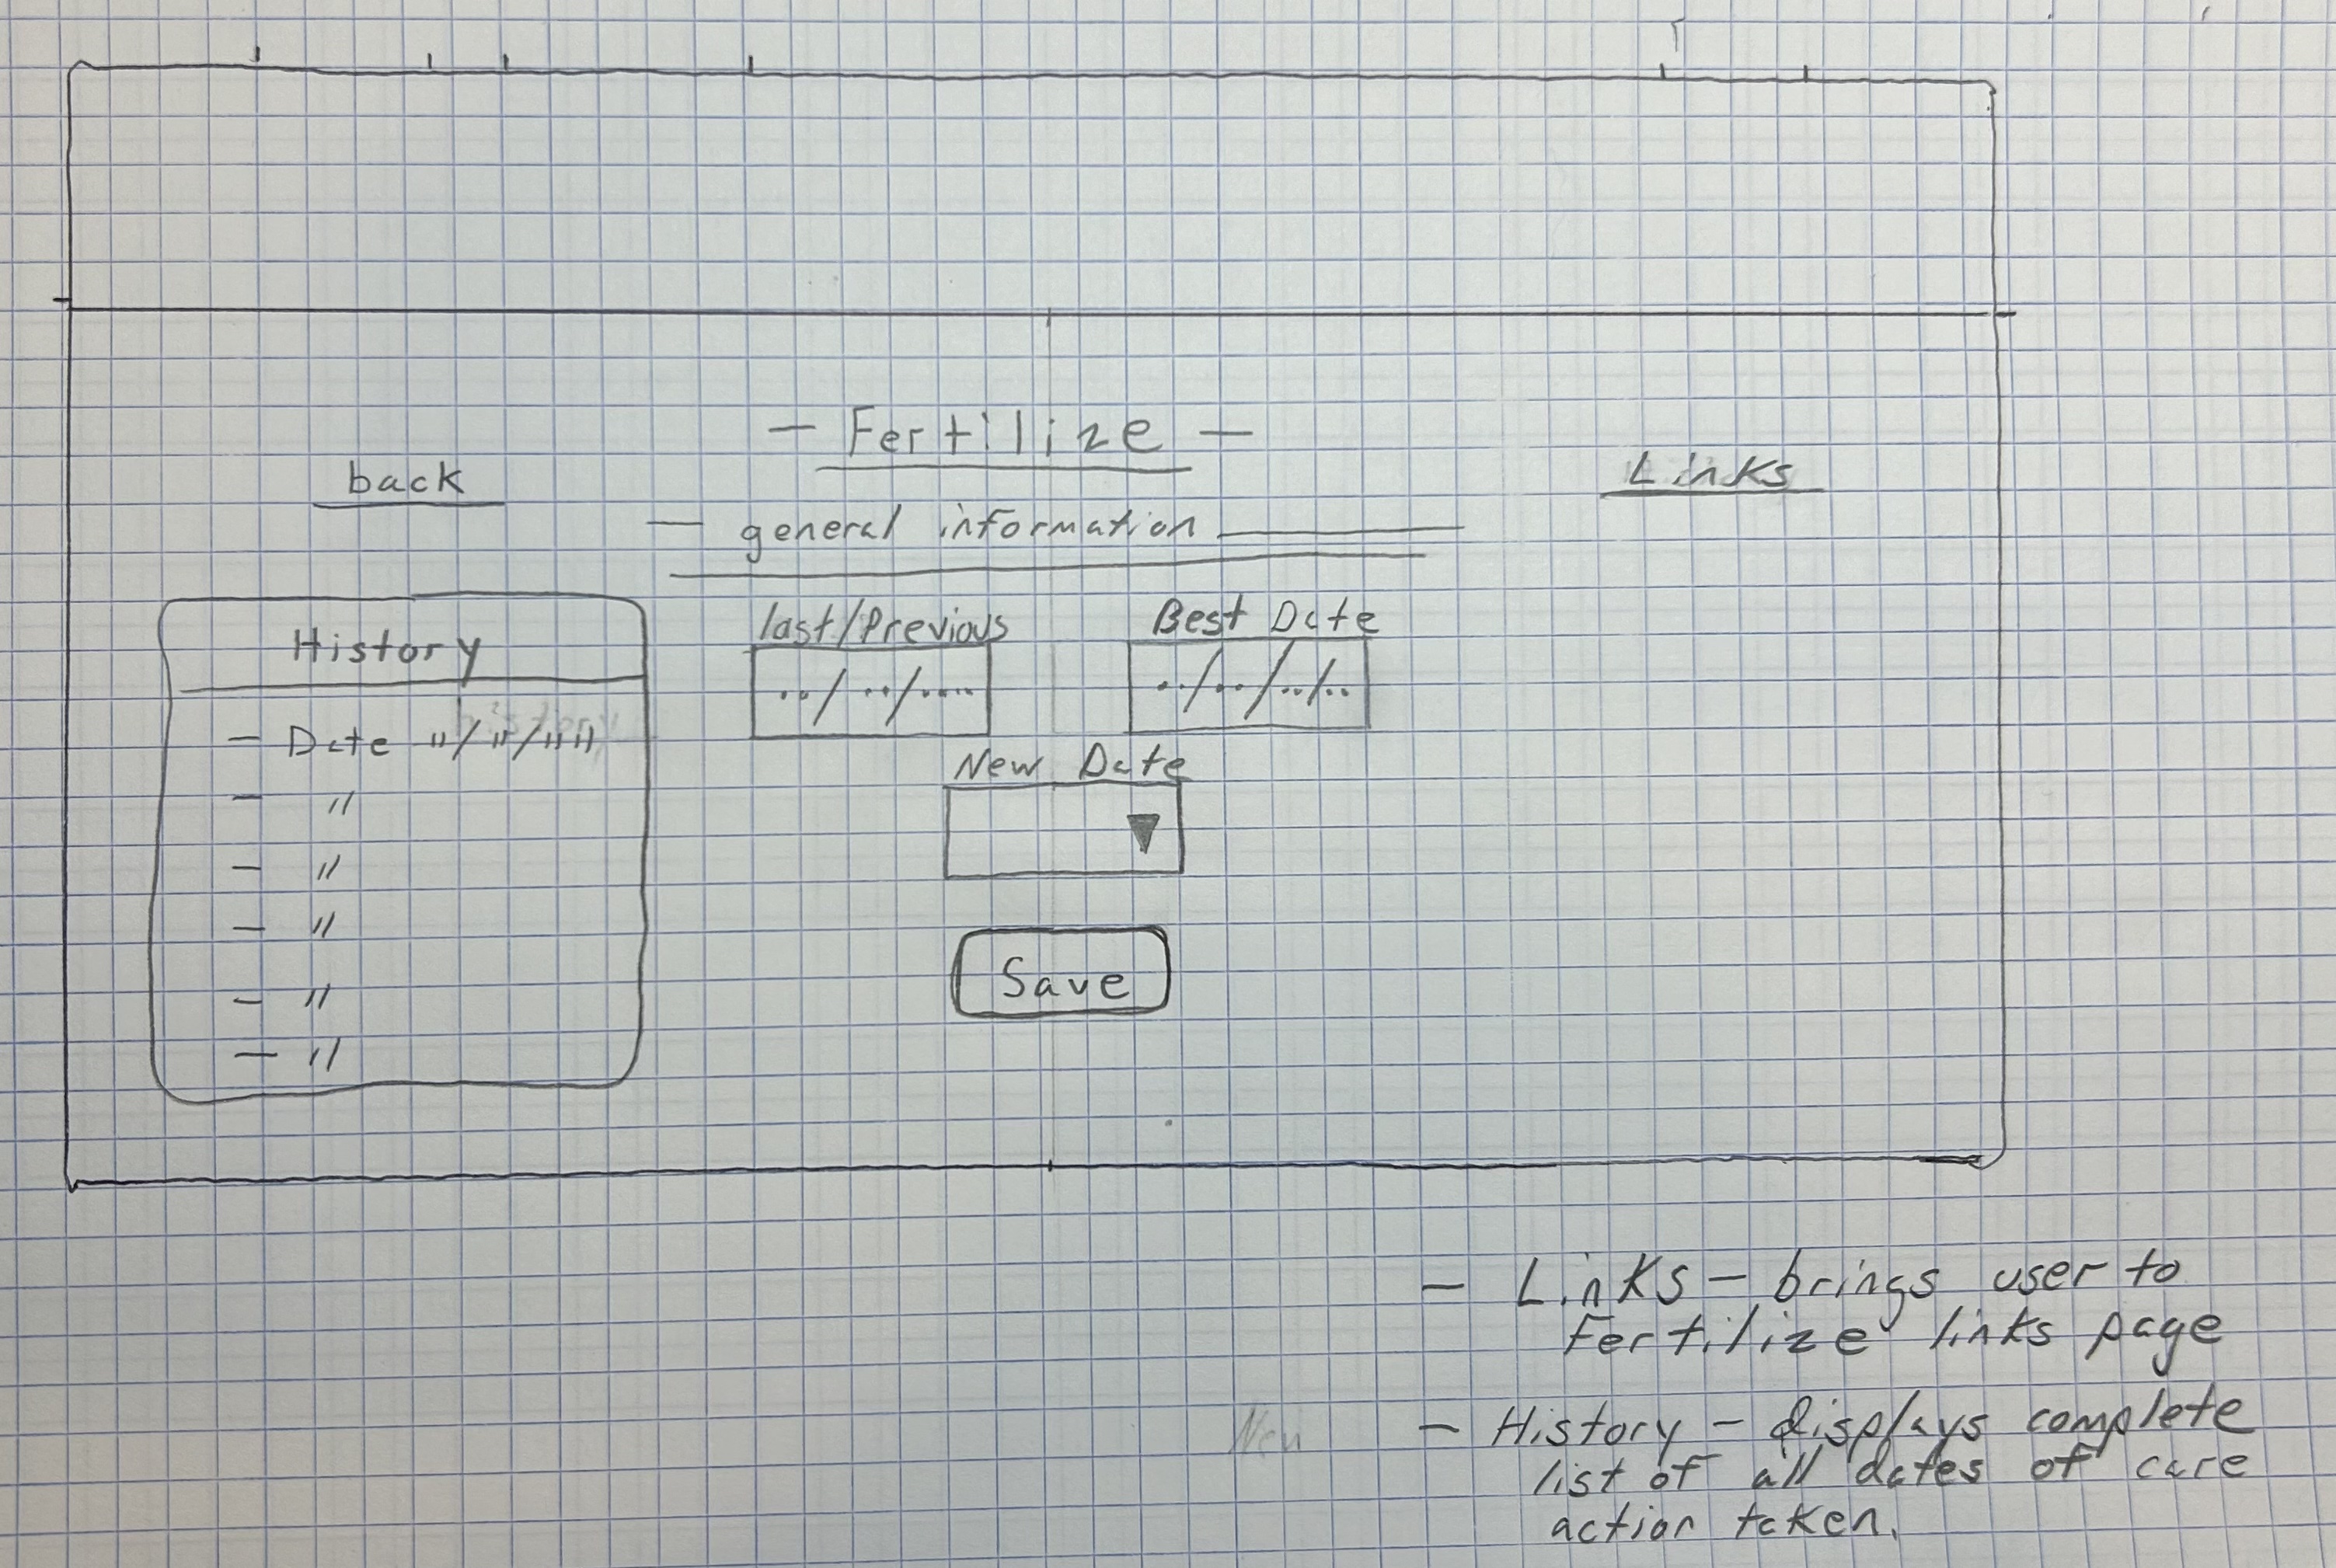 — Fertilize —
back
Links
— general information
History
last/Previous
Best Date
../../....
../../../..
— Date "/"/""
New Date
— "
— "
— "
— "
— "
▼
Save
— Links — brings user to
Fertilize links page
— History — displays complete
list of all dates of care
action taken.